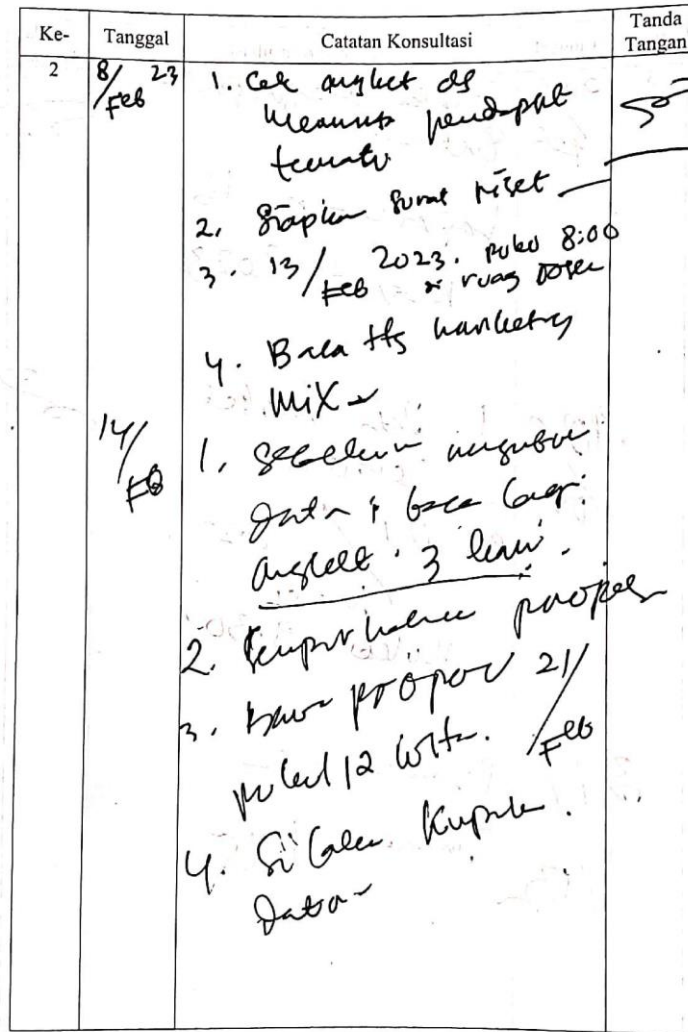 Ke- Tanggal Catatan Konsultasi Tanda Tangan
2 8/Feb 23 1. Cek angket dg
pendapat
2. Siapkan Surat riset
3. 13/Feb 2023. pukul 8:00
ruang Dosen
4. Baca ttg marketing
Mix
14/Feb 1. Sebelum
Data, baca lagi
angket 3 kali.
2. proposal
3. Bawa proposal 21/Feb
pukul 12 Wita.
4. Silakan Kumpulkan
Data